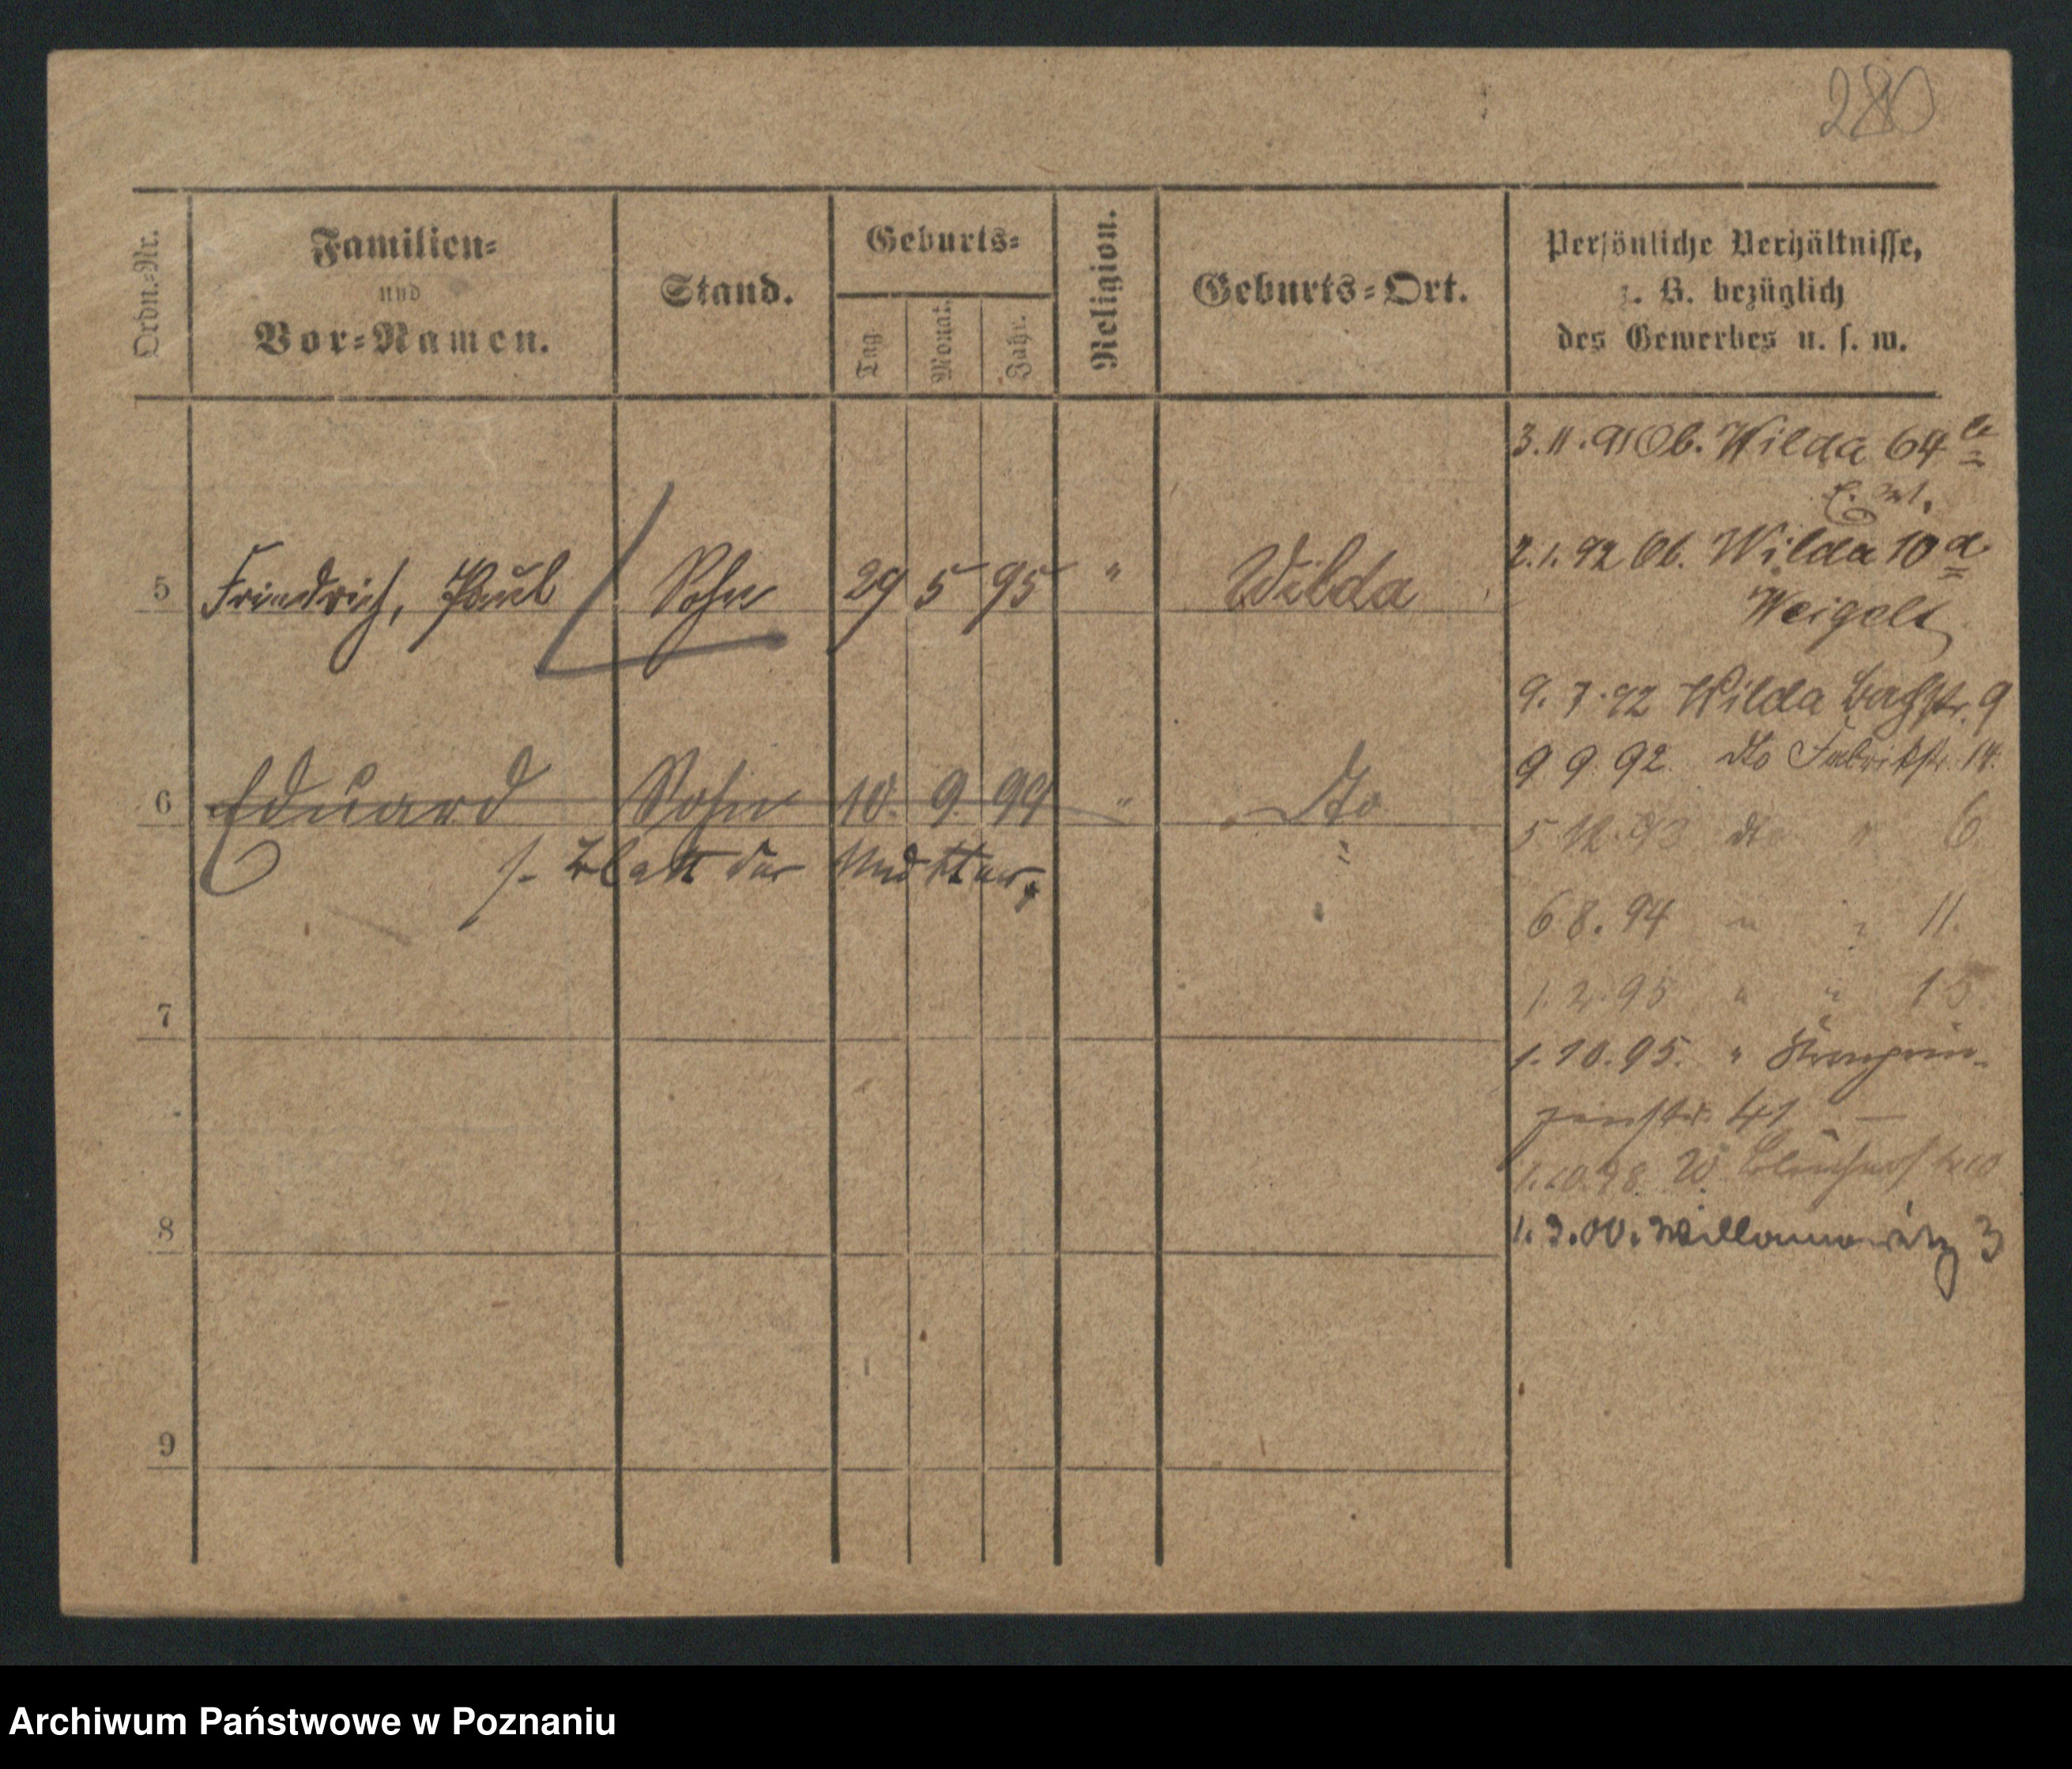 280
Ordn.-Nr.
Familien-
und
Vor-Namen.
Stand.
Geburts-
Tag.
Monat.
Jahr.
Religion.
Geburts-Ort.
Persönliche Verhältnisse,
z. B. bezüglich
des Gewerbes u. s. w.
5 Friedrich, Paul Sohn 29 5 95 " Wilda
6 Eduard Sohn 10. 9. 99 " dto
s. Blatt der Mutter.
7
8
9
3.11.91 Ob. Wilda 64
2.1.92 Ob. Wilda 10 a
Weigelt
9. 7. 92 Wilda Bachstr. 9
9 9 92. dto Fabrikstr. 14.
5 12. 93 dto " 6.
6 8. 94 " " 11.
1. 2. 95 " " 15
1. 10. 95. " Kronprin-
zenstr. 41
1.10.98. W. Blücherstr 10
1. 3. 00. Willamowitz 3
Archiwum Państwowe w Poznaniu